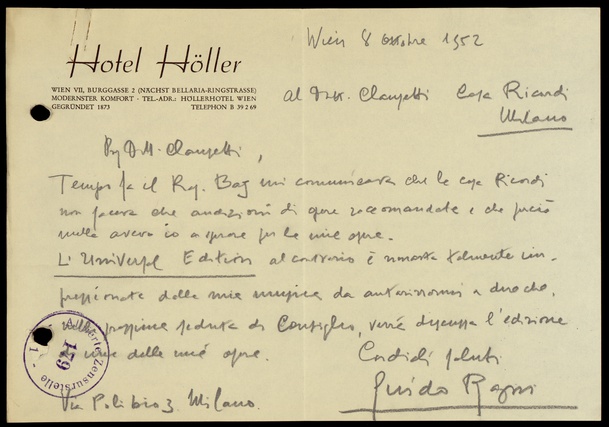 Hotel Höller
WIEN VII, BURGGASSE 2 (NÄCHST BELLARIA-RINGSTRASSE)
MODERNSTER KOMFORT - TEL.-ADR.: HÖLLERHOTEL WIEN
GEGRÜNDET 1873 TELEPHON B 39 2 69
Wien 8 ottobre 1952
Al Dott. Clausetti Casa Ricordi
Milano
Clausetti,
Tempo fa il Rag. mi comunicava che la casa Ricordi
non faceva che audizioni di opere raccomandate e che perciò
nulla avevo io a sperare per le mie opere.
L'Universal Edition al contrario è rimasta talmente im-
pressionata della mia musica da autorizzarmi a dire che,
nella prossima seduta di Consiglio, verrà discussa l'edizione
di una delle mie opere.
Cordiali saluti
Guido
Via Polibio 3. Milano.
Alliierte Zensurstelle
179
- 1 -